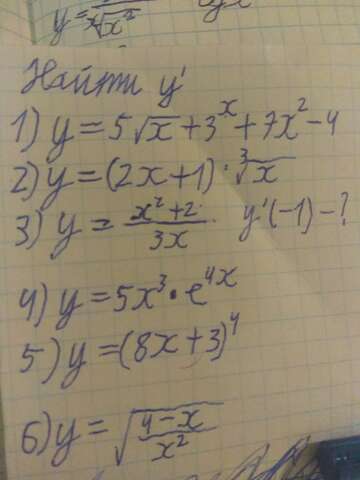 y = 
Найти y'
1) y = 5√x + 3^x + 7x² - 4
2) y = (2x+1) · ∛x
3) y = (x²+2)/(3x) y'(-1) - ?
4) y = 5x³ · e^(4x)
5) y = (8x+3)⁴
6) y = √((4-x)/x²)